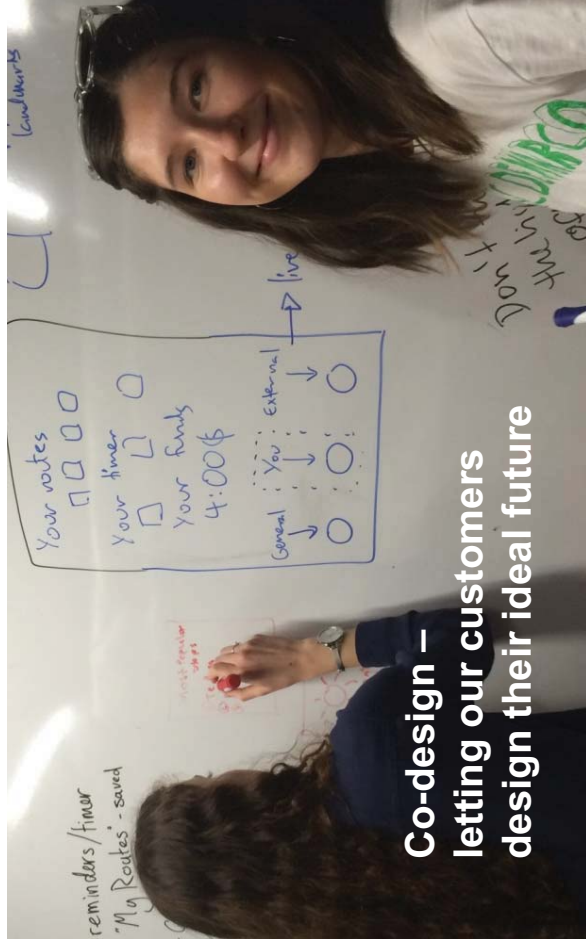 reminders/timer
"My Routes" - saved
most popular
stops
Your routes
Your timer
Your funds
4:00$
General You External
live
landmarks
Don't
the
Co-design –
letting our customers
design their ideal future